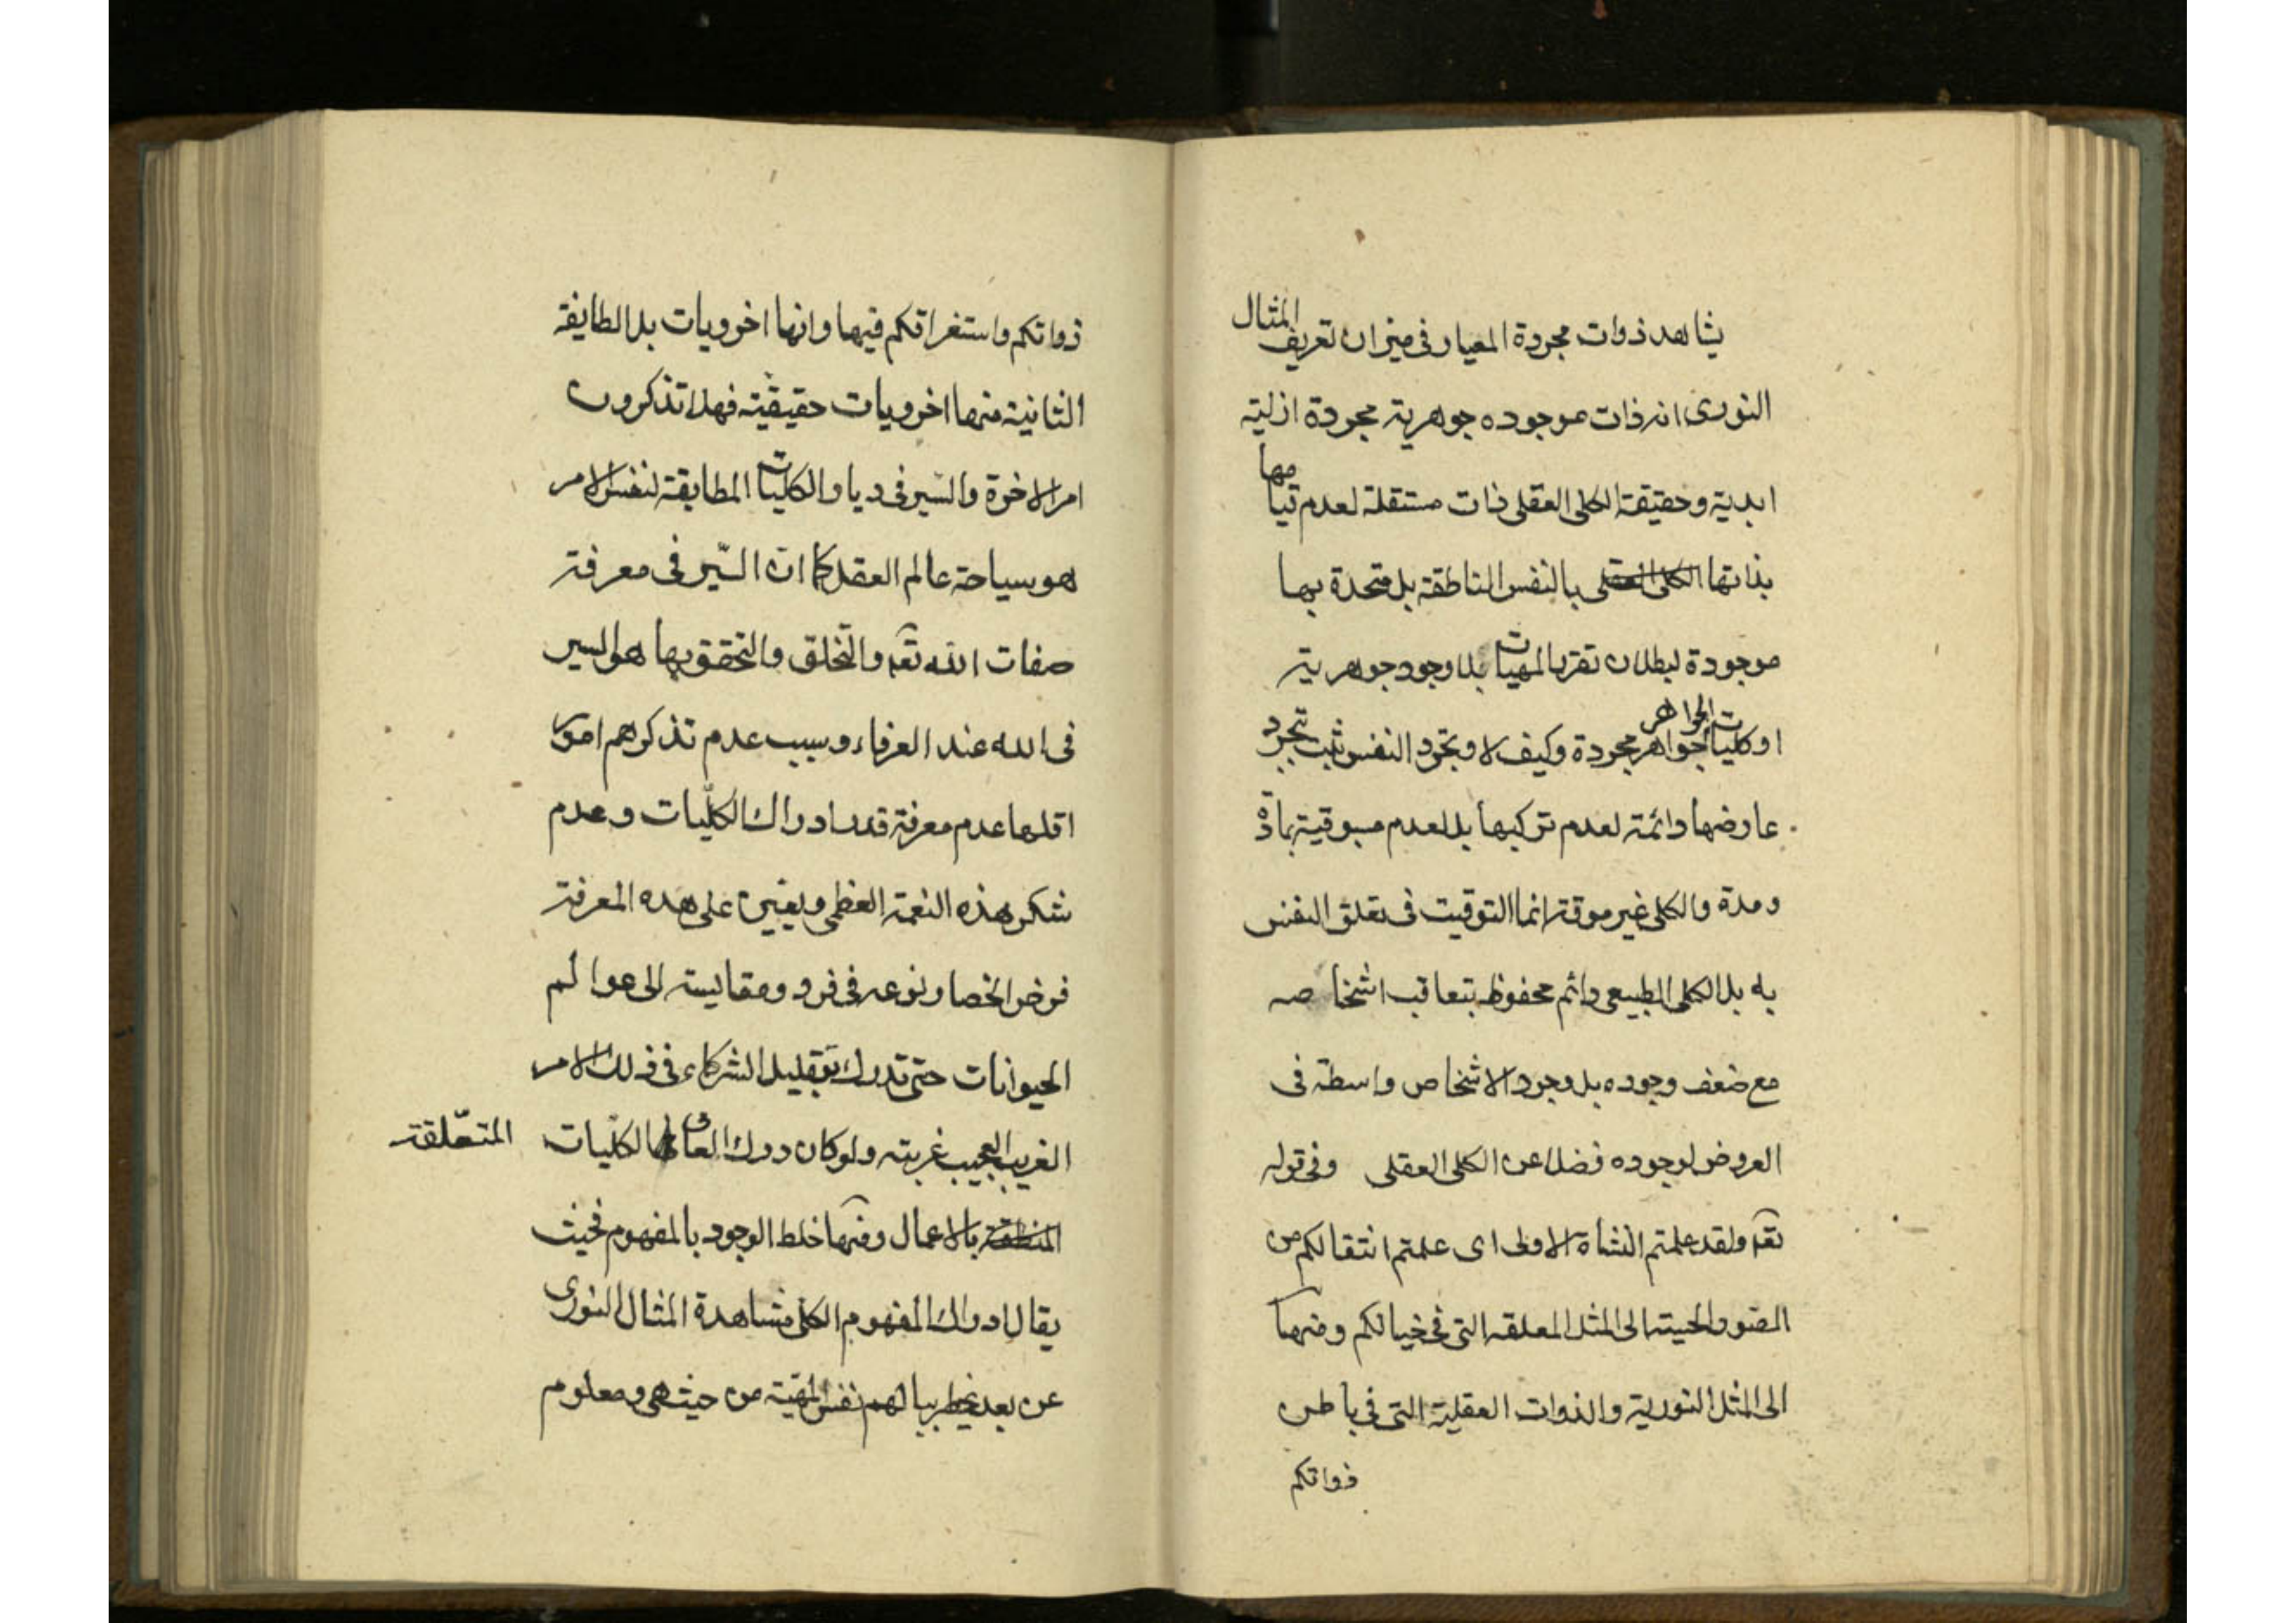 يشاهد ذوات مجردة المعيار فى ميزان تعريف المثال
النورى انه ذات موجوده جوهرية مجردة ازلية
ابدية وحقيقة الكلى العقلى ذات مستقلة لعدم قيامها
بذاتها الكلى العقلى بالنفس الناطقة بل متحدة بها
موجودة لبطلان تقرر المهيات بلا وجود جوهرية
او كليات الجواهر جواهر مجردة وكيف لا وتجرد النفس ثبت بتجرد
عارضها دائمة لعدم تركبها بل لعدم مسبوقية بمادة
ومدة والكلى غير موقتة انما التوقيت فى تعلق النفس
به بل الكلى الطبيعى دائم محفوظ بتعاقب اشخاصه
مع ضعف وجوده بل وجود الاشخاص واسطة فى
العروض لوجوده فضلا عن الكلى العقلى وفى قوله
تعه ولقد علمتم النشأة الاولى اى علمتم انتقالكم من
الصور الحسية الى المثل المعلقة التى فى خيالكم ومنها
الى المثل النورية والذوات العقلية التى فى باطن
ذواتكم
ذواتكم واستغراقكم فيها وانها اخرويات بل الطايفة
الثانية منها اخرويات حقيقية فهلا تذكرون
امر الاخرة والسير فى ديار الكليات المطابقة لنفس الامر
هو سياحة عالم العقل كما ان السير فى معرفة
صفات الله تعه والتخلق والتحقق بها هو السير
فى الله عند العرفاء وسبب عدم تذكرهم امور
اقلها عدم معرفة قدر ادراك الكليات وعدم
شكر هذه النعمة العظمى ويعين على هذه المعرفة
فرض انحصار نوعه فى فرد ومقايسته الى عوالم
الحيوانات حتى تدرك بتقليل الشركاء فى ذلك الامر
الغريب العجيب غربته ولو كان درك العالم الكليات المتعلقة
المنطقة بالاعمال ومنها خلط الوجود بالمفهوم فحيث
يقال ادراك المفهوم الكلى مشاهدة المثال النورى
عن بعد يخطر ببالهم نفس المهية من حيث هى ومعلوم